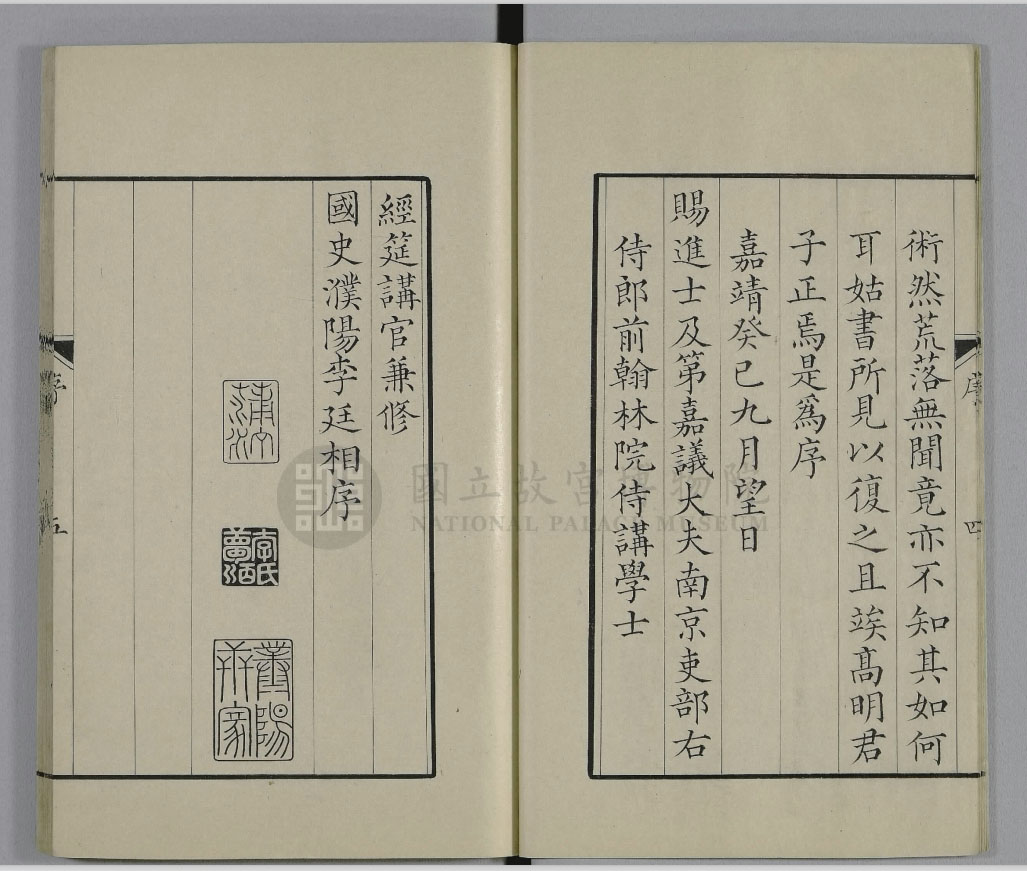 術然荒落無聞竟亦不知其如何
耳姑書所見以復之且竢髙明君
子正焉是爲序
嘉靖癸巳九月望日
賜進士及第嘉議大夫南京吏部右
侍郎前翰林院侍講學士
序
四
經筵講官兼修
國史濮陽李廷相序
蒲汀
李氏
序
五
國立故宮博物院
NATIONAL PALACE MUSEUM